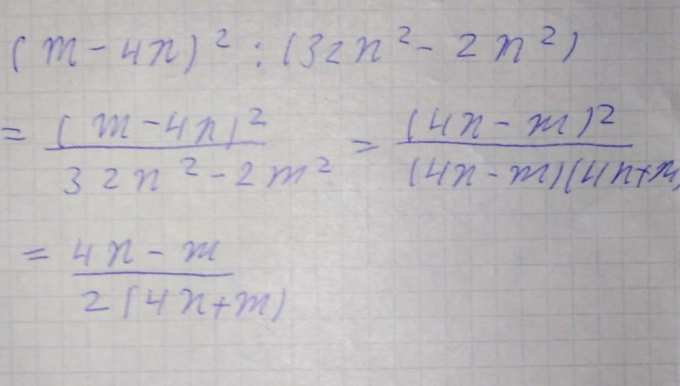 (m - 4n)² : (32n² - 2n²)
= (m - 4n)² / 32n² - 2m² = (4n - m)² / (4n - m)(4n + m)
= 4n - m / 2(4n + m)